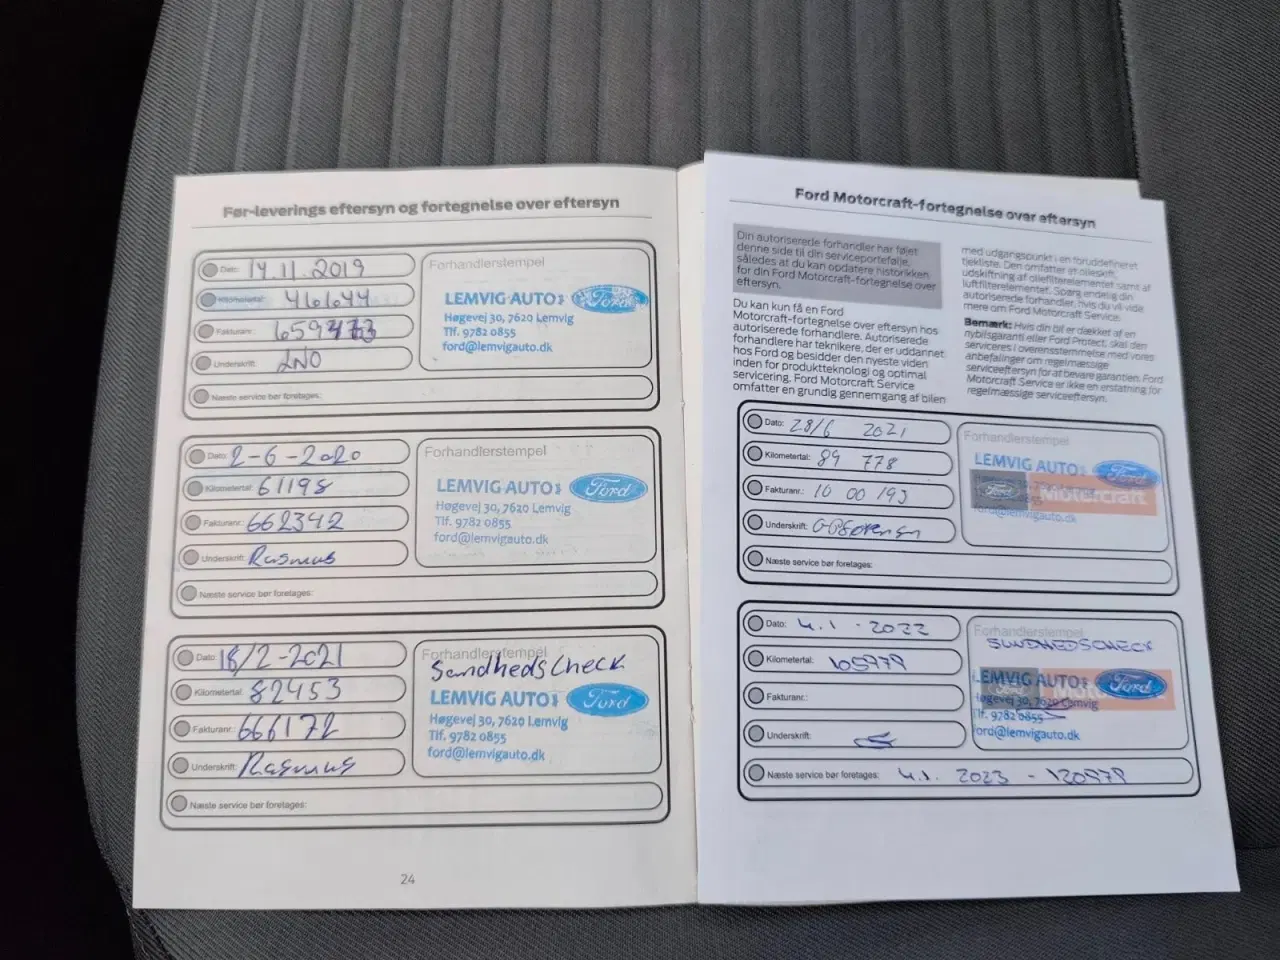 Før-leverings eftersyn og fortegnelse over eftersyn
Dato: 14.11.2019
Kilometertal: 46644
Fakturanr.:
Underskrift: LNO
Næste service bør foretages:
Forhandlerstempel
LEMVIG AUTO A/S Ford
Høgevej 30, 7620 Lemvig
Tlf. 9782 0855
ford@lemvigauto.dk
Dato: 2-6-2020
Kilometertal: 61198
Fakturanr.: 662342
Underskrift: Rasmus
Næste service bør foretages:
Forhandlerstempel
LEMVIG AUTO A/S Ford
Høgevej 30, 7620 Lemvig
Tlf. 9782 0855
ford@lemvigauto.dk
Dato: 18/2-2021
Kilometertal: 82453
Fakturanr.: 666172
Underskrift: Rasmus
Næste service bør foretages:
Forhandlerstempel
Sundhedscheck
LEMVIG AUTO A/S Ford
Høgevej 30, 7620 Lemvig
Tlf. 9782 0855
ford@lemvigauto.dk
24
Ford Motorcraft-fortegnelse over eftersyn
Din autoriserede forhandler har føjet
denne side til din serviceportefølje,
således at du kan opdatere historikken
for din Ford Motorcraft-fortegnelse over
eftersyn.
Du kan kun få en Ford
Motorcraft-fortegnelse over eftersyn hos
autoriserede forhandlere. Autoriserede
forhandlere har teknikere, der er uddannet
hos Ford og besidder den nyeste viden
inden for produktteknologi og optimal
servicering. Ford Motorcraft Service
omfatter en grundig gennemgang af bilen
med udgangspunkt i en foruddefineret
tjekliste. Den omfatter et olieskift,
udskiftning af oliefilterelementet samt af
luftfilterelementet. Spørg endelig din
autoriserede forhandler, hvis du vil vide
mere om Ford Motorcraft Service.
Bemærk: Hvis din bil er dækket af en
nybilsgaranti eller Ford Protect, skal den
serviceres i overensstemmelse med vores
anbefalinger om regelmæssige
serviceeftersyn for at bevare garantien. Ford
Motorcraft Service er ikke en erstatning for
regelmæssige serviceeftersyn.
Dato: 28/6 2021
Kilometertal: 89 778
Fakturanr.: 10 00 193
Underskrift:
Næste service bør foretages:
Forhandlerstempel
LEMVIG AUTO A/S Ford
Ford Motorcraft
ford@lemvigauto.dk
Dato: 4.1 - 2022
Kilometertal: 105979
Fakturanr.:
Underskrift:
Næste service bør foretages: 4.1. 2023 - 120979
Forhandlerstempel
SUNDHEDSCHECK
LEMVIG AUTO A/S Ford
Høgevej 30, 7620 Lemvig
Tlf. 9782 0855
ford@lemvigauto.dk